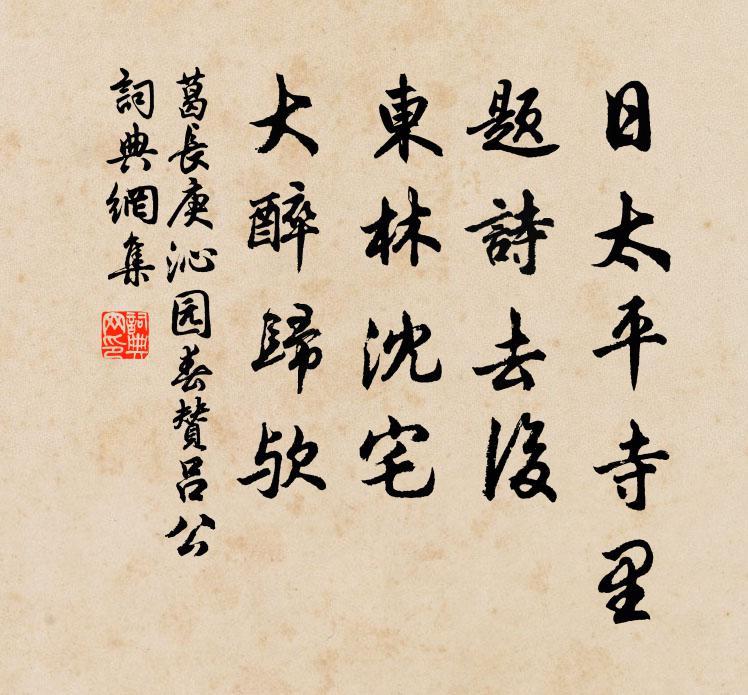 日太平寺里
题詩去後
東林沈宅
大醉歸欤
葛長庚沁园春贊吕公
詞典網集
詞典網印